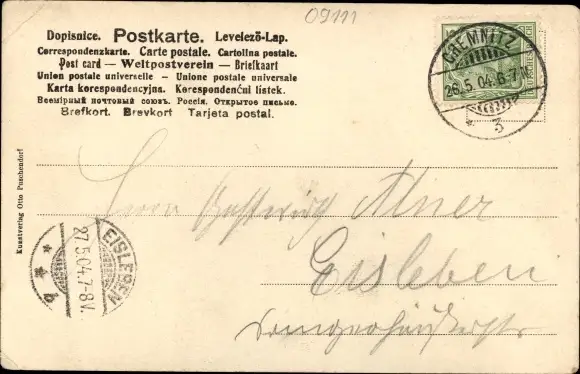 09111
Dopisnice. Postkarte. Levelező-Lap.
Correspondenzkarte. Carte postale. Cartolina postale.
Post card — Weltpostverein — Briefkaart
Union postale universelle - Unione postale universale
Karta korespondencyjna. Korespondenční lístek.
Всемірный почтовый союзъ. Россія. Открытое письмо.
Brefkort. Brevkort Tarjeta postal.
CHEMNITZ
26.5.04.6-7N.
3
Kunstverlag Otto Puschendorf
EISLEBEN
27.5.04.7-8V.
Herrn Gastwirth
Eisleben